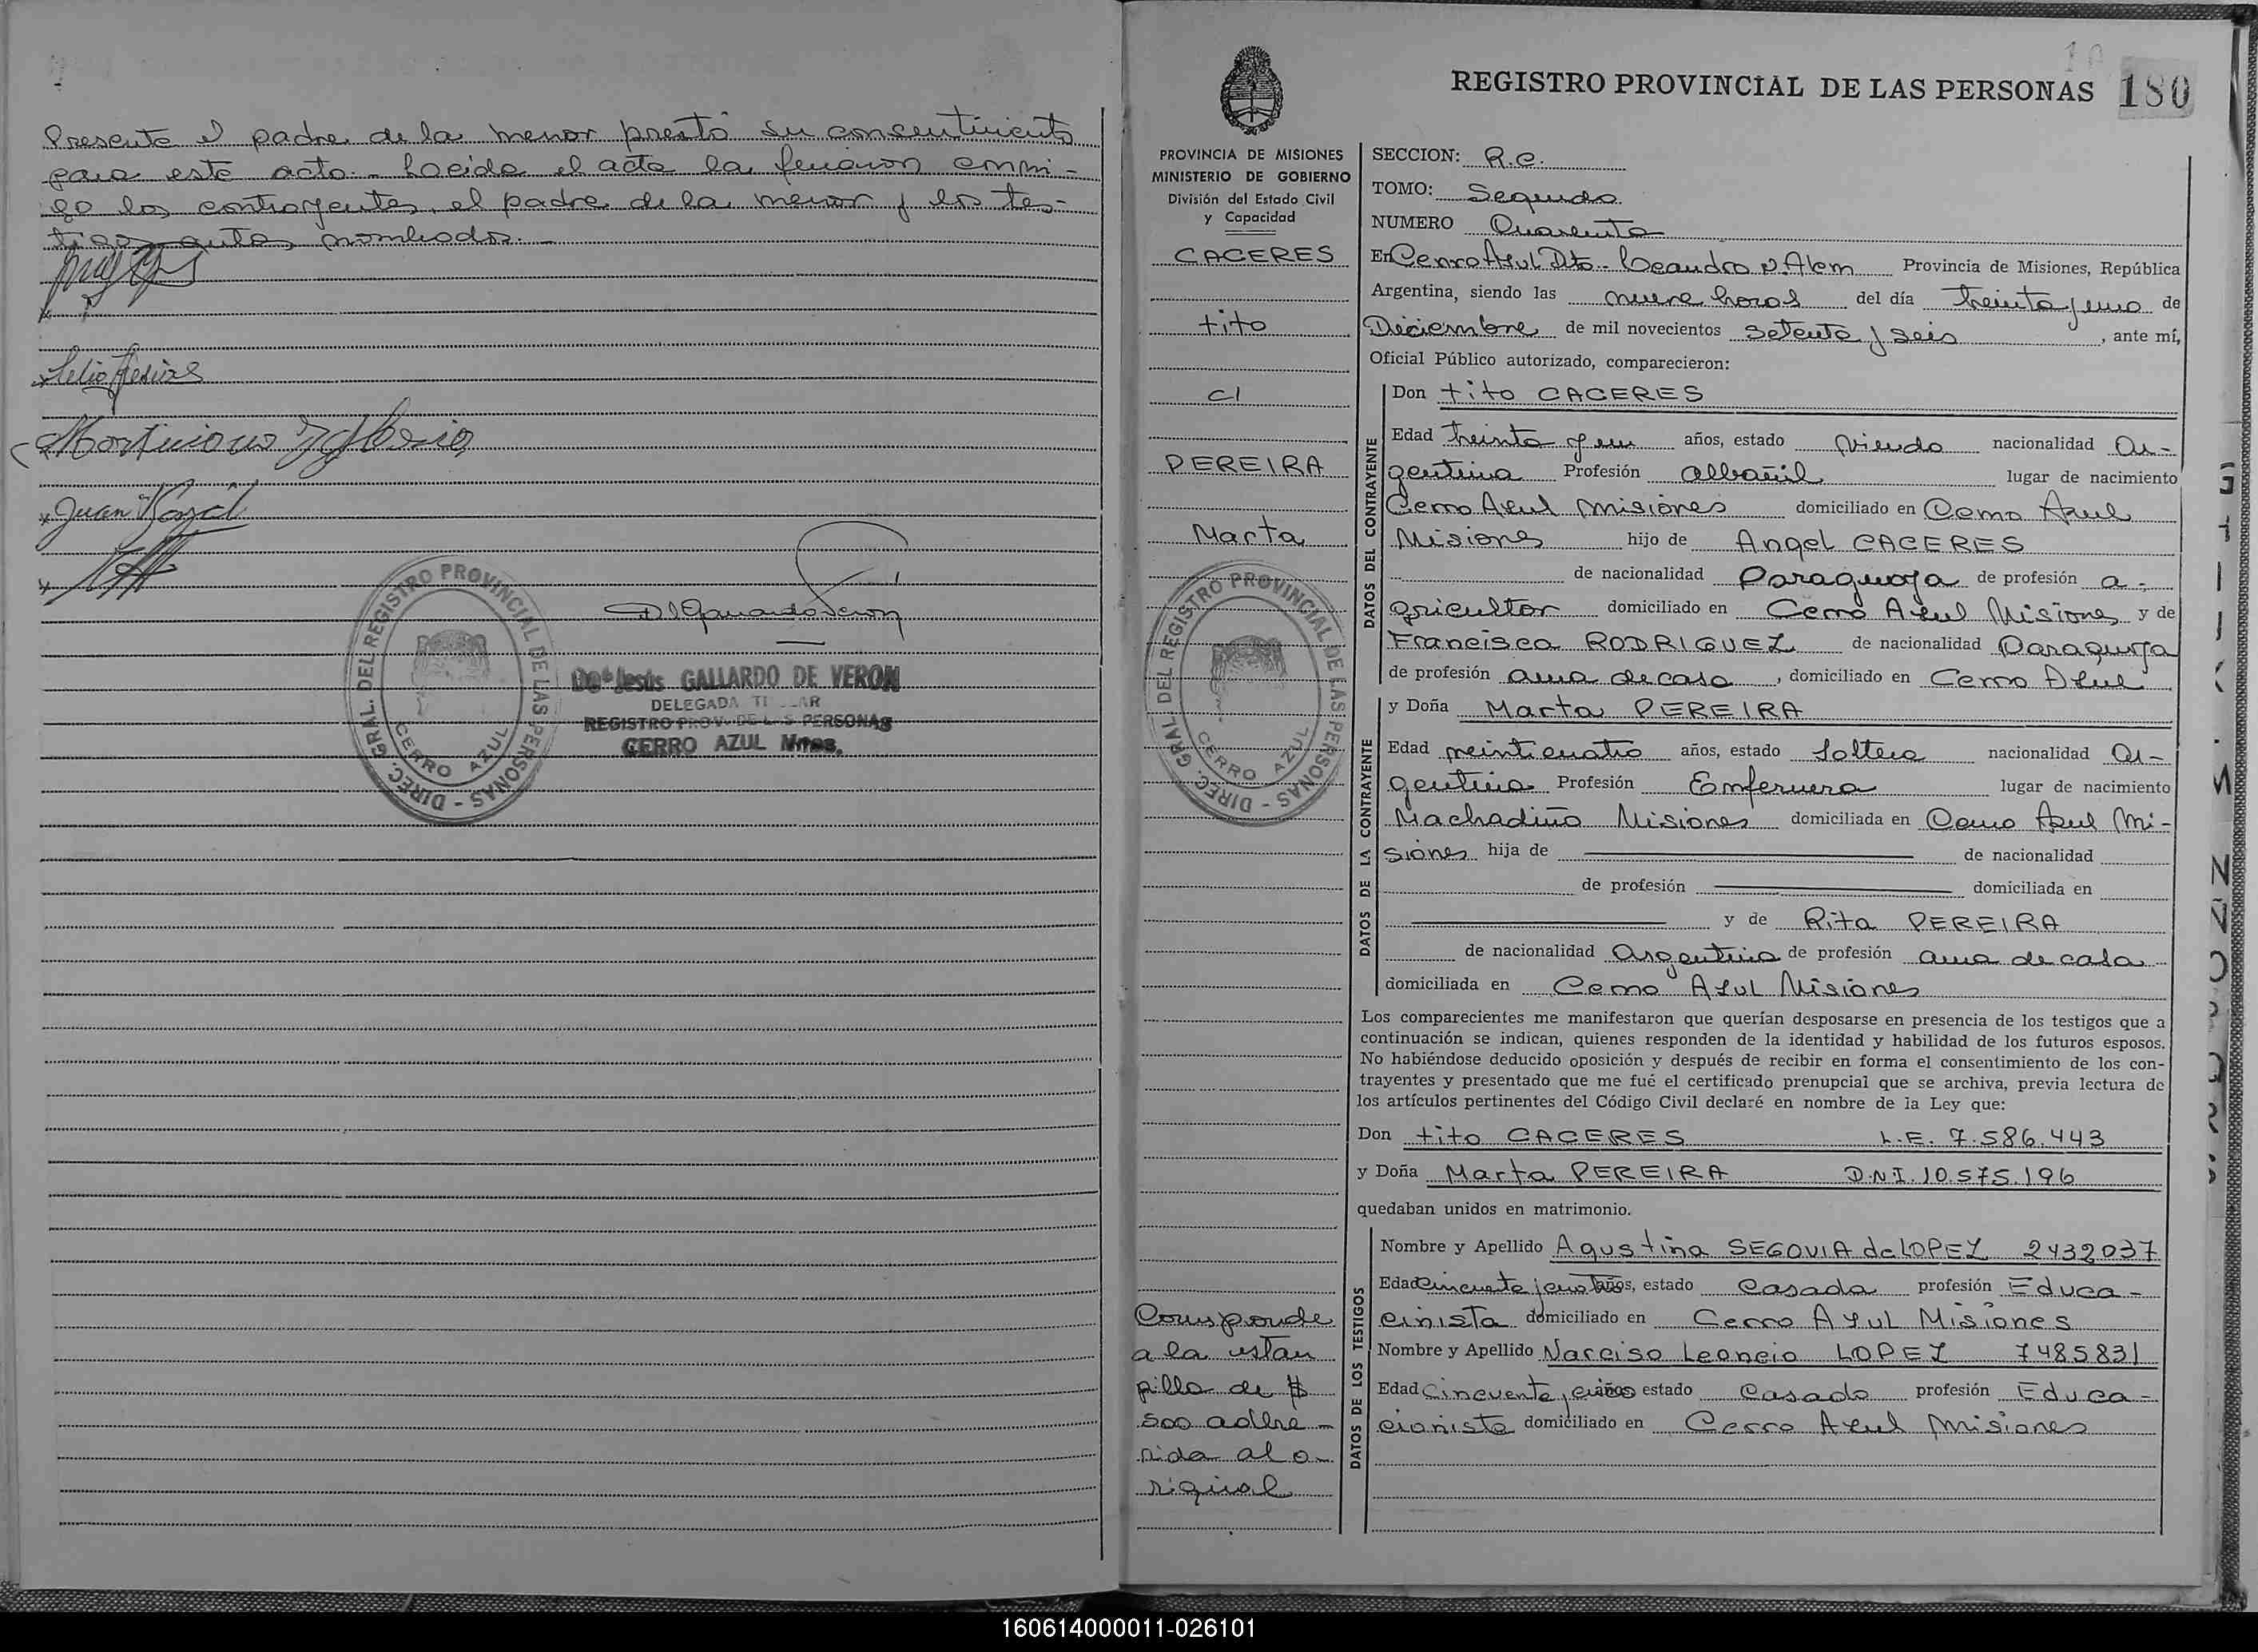 Presente el padre de la menor prestó su consentimiento
para este acto.- Leeida el acta la firmaron conmi-
go los contrayentes, el padre de la menor y los tes-
tigos antes nombrados.-
Juan
Dª Jesús GALLARDO DE VERON
DELEGADA TITULAR
REGISTRO PROV. DE LAS PERSONAS
CERRO AZUL Mnes.
DIREC. GRAL. DEL REGISTRO PROVINCIAL DE LAS PERSONAS -
CERRO AZUL
REGISTRO PROVINCIAL DE LAS PERSONAS 180
PROVINCIA DE MISIONES
MINISTERIO DE GOBIERNO
División del Estado Civil
y Capacidad
CACERES
tito
c/
PEREIRA
Marta
DIREC. GRAL. DEL REGISTRO PROVINCIAL DE LAS PERSONAS -
CERRO AZUL
Corresponde
a la estam
pilla de $
500 adhe-
rida al o-
riginal
SECCION: R.C.
TOMO: Segundo
NUMERO Cuarenta
En Cerro Azul Dto.- Leandro N. Alem Provincia de Misiones, República
Argentina, siendo las nueve horas del día treinta y uno de
Diciembre de mil novecientos setenta y seis, ante mí,
Oficial Público autorizado, comparecieron:
DATOS DEL CONTRAYENTE
Don tito CACERES
Edad treinta y un años, estado viudo nacionalidad ar-
gentina Profesión albañil lugar de nacimiento
Cerro Azul Misiones domiciliado en Cerro Azul
Misiones hijo de Angel CACERES
de nacionalidad Paraguaya de profesión a-
gricultor domiciliado en Cerro Azul Misiones y de
Francisca RODRIGUEZ de nacionalidad Paraguaya
de profesión ama de casa, domiciliado en Cerro Azul
DATOS DE LA CONTRAYENTE
y Doña Marta PEREIRA
Edad veinticuatro años, estado soltera nacionalidad ar-
gentina Profesión Enfermera lugar de nacimiento
Machadiño Misiones domiciliada en Cerro Azul Mi-
siones hija de de nacionalidad
de profesión domiciliada en
y de Rita PEREIRA
de nacionalidad Argentina de profesión ama de casa
domiciliada en Cerro Azul Misiones
Los comparecientes me manifestaron que querían desposarse en presencia de los testigos que a
continuación se indican, quienes responden de la identidad y habilidad de los futuros esposos.
No habiéndose deducido oposición y después de recibir en forma el consentimiento de los con-
trayentes y presentado que me fué el certificado prenupcial que se archiva, previa lectura de
los artículos pertinentes del Código Civil declaré en nombre de la Ley que:
Don tito CACERES L.E. 7.586.443
y Doña Marta PEREIRA D.N.I. 10.575.196
quedaban unidos en matrimonio.
DATOS DE LOS TESTIGOS
Nombre y Apellido Agustina SEGOVIA de LOPEZ 2432037
Edad años, estado Casada profesión Educa-
cinista domiciliado en Cerro Azul Misiones
Nombre y Apellido Narciso Leoncio LOPEZ 7485831
Edad cincuenta años estado Casado profesión Educa-
cionista domiciliado en Cerro Azul Misiones
160614000011-026101